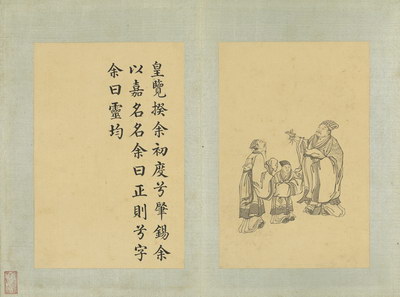 皇覽揆余初度兮肇錫余
以嘉名名余曰正則兮字
余曰靈均